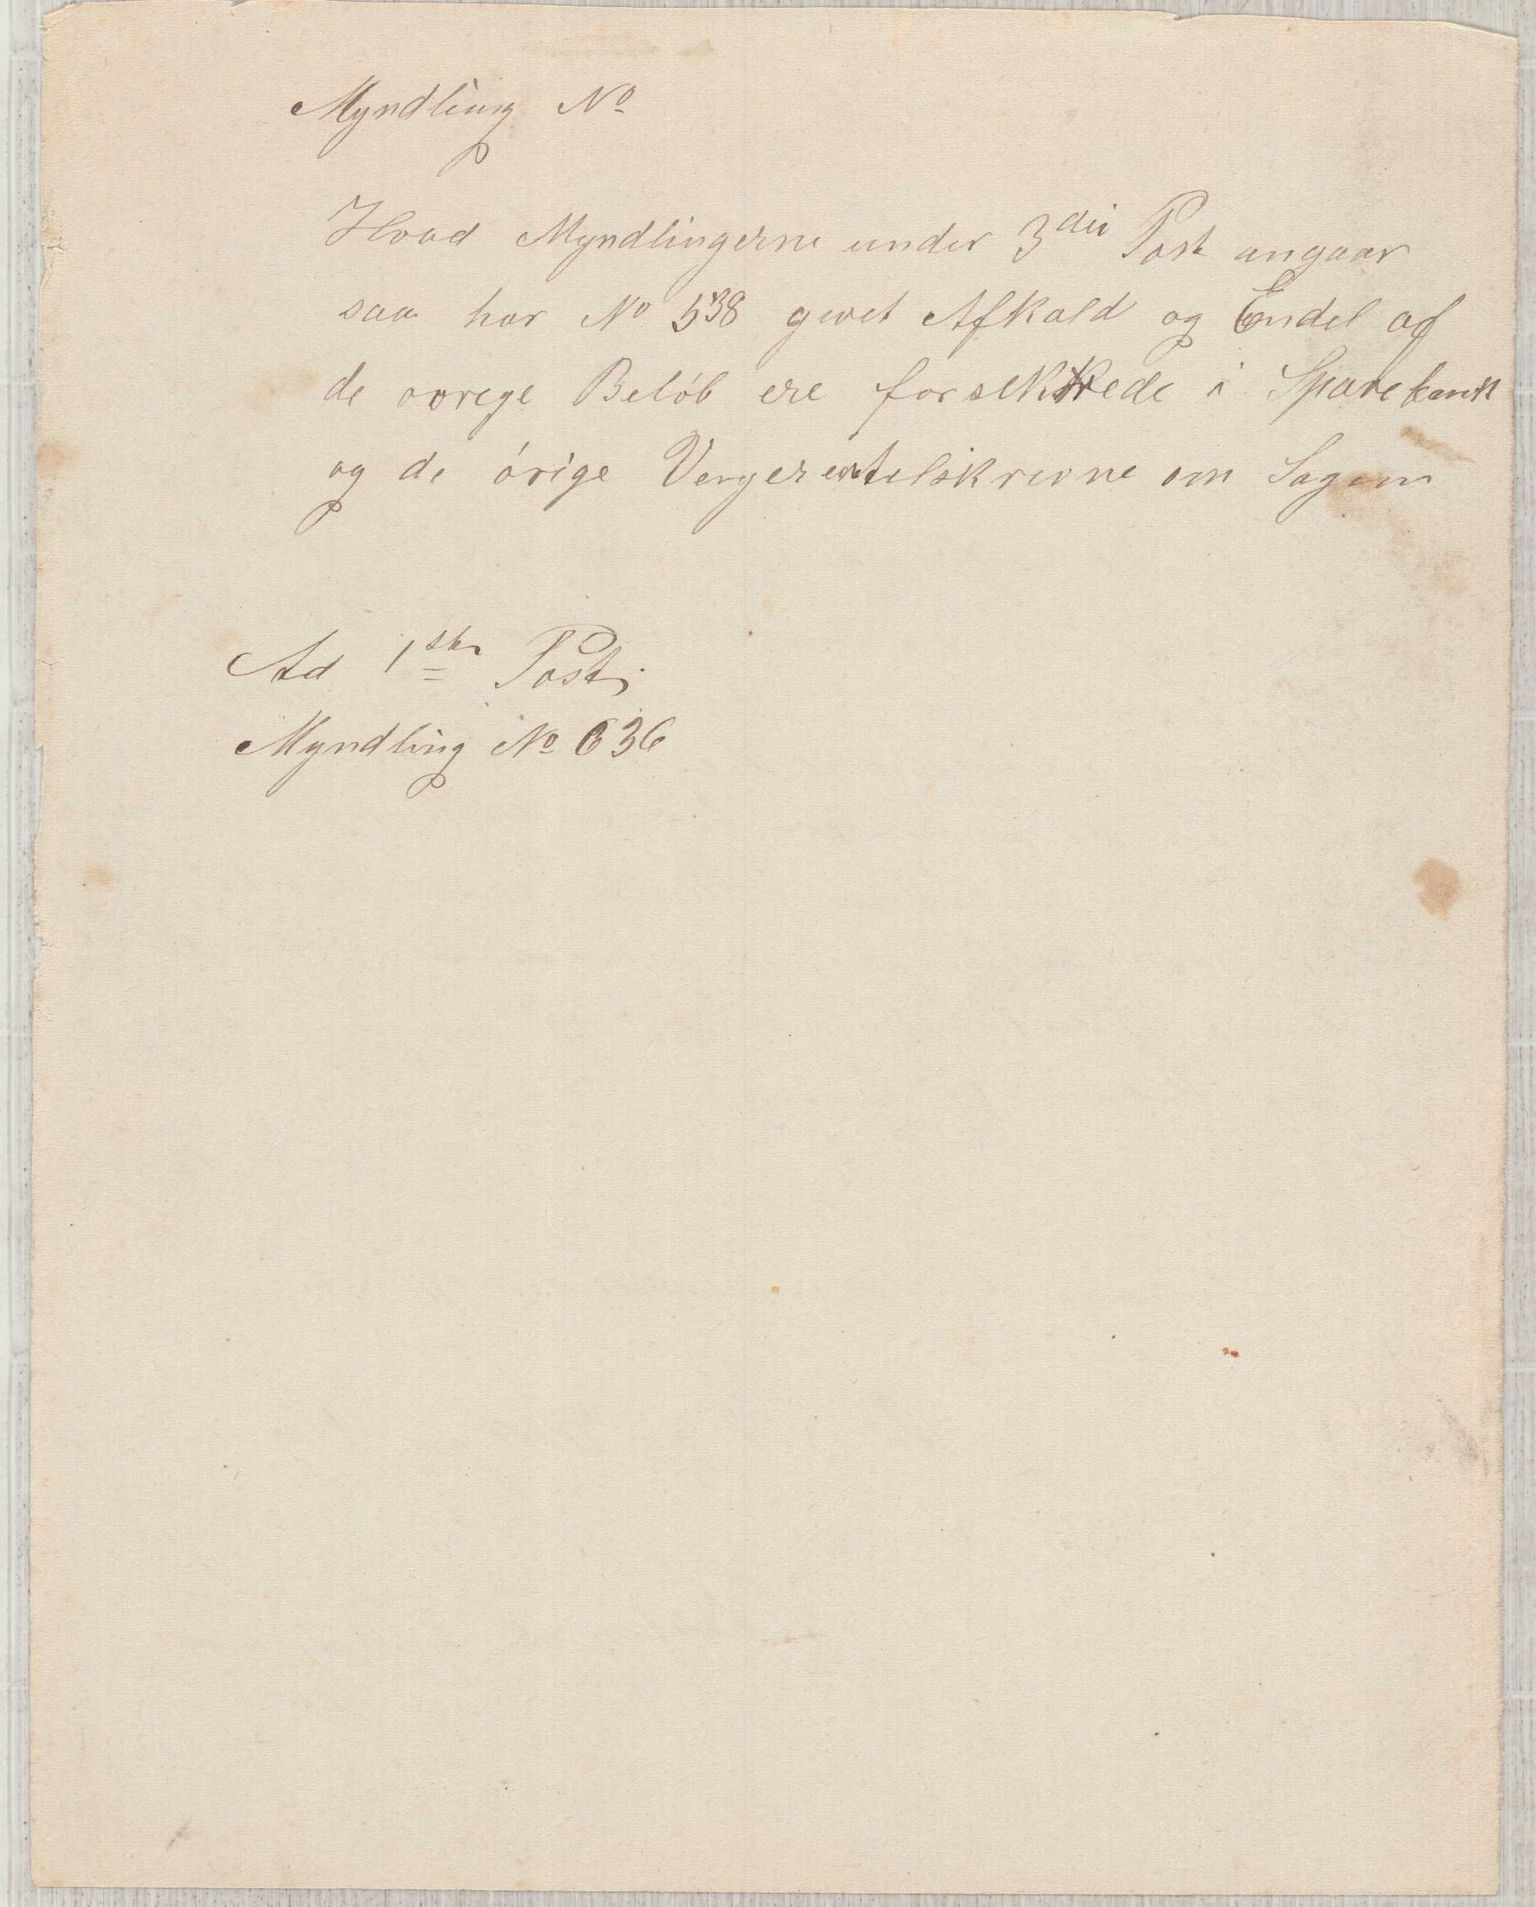 Myndling No
Hvad Myndlingerne under 3die Post angaar
saa har No 538 givet Afkald og Endel af
de ovrege Beløb ere forsekrede i Sparebank
og de órige Verger ere tilskrevne om Sagen
Ad 1ste Post;
Myndling No 636